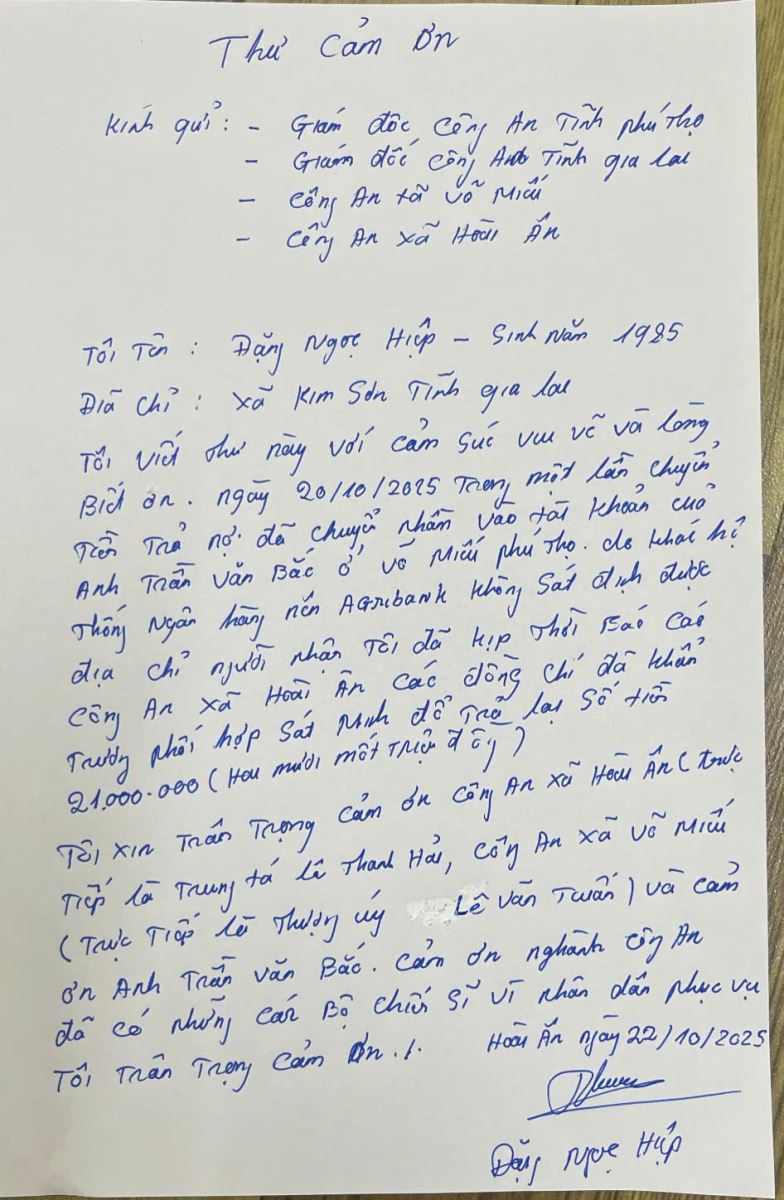 Thư Cảm Ơn
Kính gửi : - Giám đốc Công An Tĩnh phú Thọ
- Giám đốc Công An Tĩnh gia lai
- Công An xã Võ Miếu
- Công An xã Hoài Ân
Tôi Tên : Đặng Ngọc Hiệp - Sinh Năm 1985
Địa chỉ : xã Kim Sơn Tĩnh gia lai
Tôi viết thư này với cảm súc vui vẽ và lòng
Biết ơn. ngày 20/10/2025 Trong một lần chuyển
Tiền Trả nợ. đã chuyển nhầm vào tài khoản cuả
Anh Trần Văn Bắc ở võ Miếu phú thọ. do khác hệ
Thống Ngân hàng nên Agribank không Sát định được
địa chỉ người nhận Tôi đã kịp thời Báo Cáo
Công An xã Hoài Ân các đồng chí đã khẩn
Trương phối hợp Sát Minh để Trả lại Số tiền
21.000.000 (Hai mươi một Triệu đồng)
Tôi xin Trân Trọng Cảm ơn Công An xã Hoài Ân (trực
Tiếp là Trung tá lê Thanh Hải, Công An xã võ Miếu
(Trực Tiếp là Thượng úy Lê Văn Tuấn) và cảm
ơn Anh Trần Văn Bắc. Cảm ơn nghành Công An
đã có những Cán Bộ chiến Sĩ vì nhân dân phục vụ
Tôi Trân Trọng Cảm Ơn./. Hoài Ân ngày 22/10/2025
Đặng Ngọc Hiệp